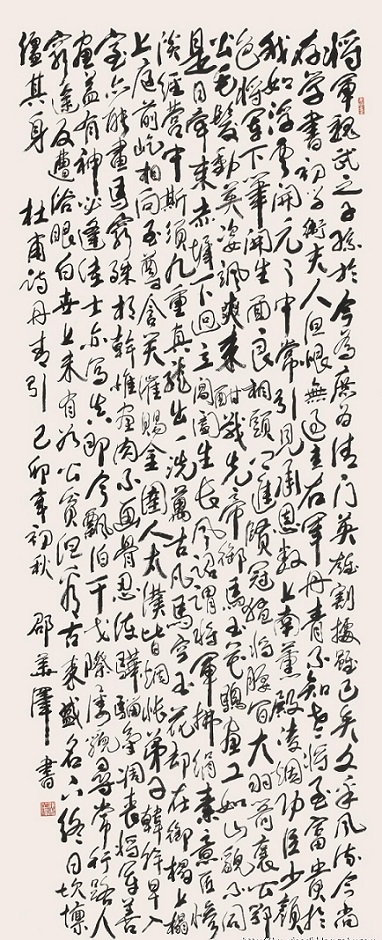 将軍魏武之子孫於今為庶為清門英雄割據雖已矣文采風流今尚
存学書初学衛夫人但恨無過王右軍丹青不知老将至富貴於
我如浮雲開元之中常引見承恩数上南薰殿凌烟功臣少顔
色将軍下筆開生面良相頭上進賢冠猛将腰間大羽箭褒公鄂
公毛髮動英姿颯爽来酣戰先帝御馬玉花驄画工如山貌不同
是日牽来赤墀下迥立閶闔生長風詔謂将軍拂絹素意匠慘
淡經營中斯須九重真龍出一洗萬古凡馬空玉花却在御榻上榻
上庭前屹相向至尊含笑催賜金圉人太僕皆惆悵弟子韓幹早入
室亦能画馬窮殊相幹惟画肉不画骨忍使驊騮氣凋喪将軍善
画盖有神必逢佳士亦寫真即今飄泊干戈際屢貌尋常行路人
窮途反遭俗眼白世上未有如公貧但看古来盛名下終日坎壈
纏其身 杜甫詩丹青引 己卯年初秋 邵華澤書